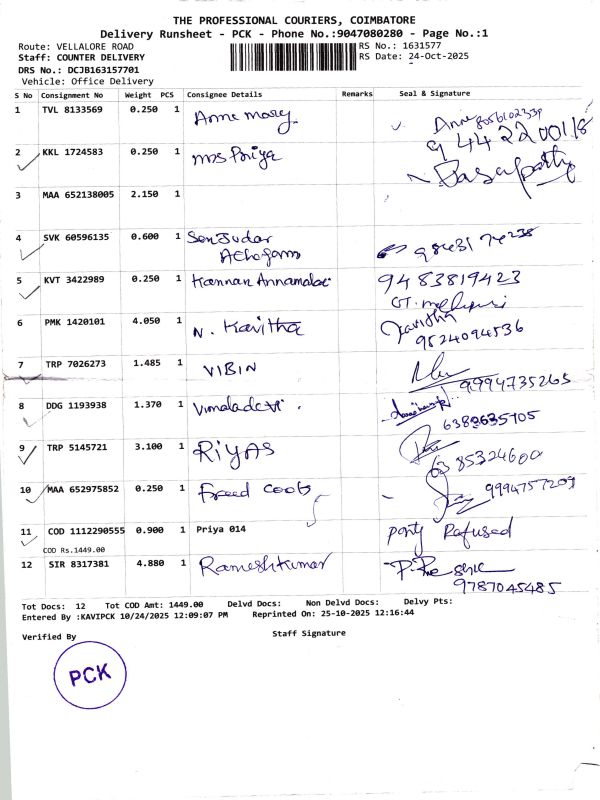 THE PROFESSIONAL COURIERS, COIMBATORE
Delivery Runsheet - PCK - Phone No.:9047080280 - Page No.:1
Route: VELLALORE ROAD
RS No.: 1631577
Staff: COUNTER DELIVERY
RS Date: 24-Oct-2025
DRS No.: DCJB163157701
Vehicle: Office Delivery
S No Consignment No Weight PCS Consignee Details Remarks Seal & Signature
1 TVL 8133569 0.250 1 Anne mary Anne
9442200118
2 KKL 1724583 0.250 1 mrs Priya
3 MAA 652138005 2.150 1
4 SVK 60596135 0.600 1
5 KVT 3422989 0.250 1 Kannan Annamalai 9483819423
6 PMK 1420101 4.050 1 N. Kavitha Kavitha
9524094536
7 TRP 7026273 1.485 1 VIBIN
9994735265
8 DDG 1193938 1.370 1 Vimaladevi.
6382635705
9 TRP 5145721 3.100 1 RiYAS
10 MAA 652975852 0.250 1 9994757209
11 COD 1112290555 0.900 1 Priya 014 party Refused
COD Rs.1449.00
12 SIR 8317381 4.880 1 Rameshkumar
9787045485
Tot Docs: 12 Tot COD Amt: 1449.00 Delvd Docs: Non Delvd Docs: Delvy Pts:
Entered By :KAVIPCK 10/24/2025 12:09:07 PM Reprinted On: 25-10-2025 12:16:44
Verified By Staff Signature
PCK